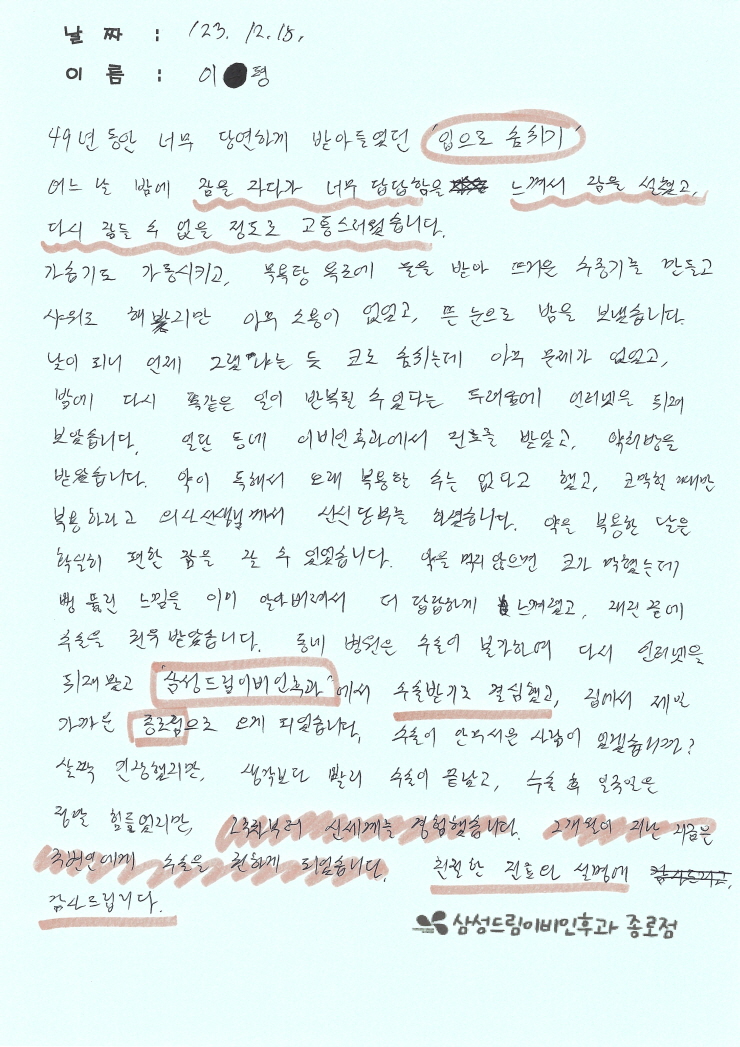 날 짜 : '23. 12. 18.
이 름 : 이 평
49년 동안 너무 당연하게 받아들였던 '입으로 숨쉬기'
어느 날 밤에 잠을 자다가 너무 답답함을 느껴서 잠을 설쳤고,
다시 잠들 수 없을 정도로 고통스러웠습니다.
가습기도 가동시키고, 목욕탕 욕조에 물을 받아 뜨거운 수증기를 만들고
샤워도 해봤지만 아무 소용이 없었고, 뜬 눈으로 밤을 보냈습니다.
낮이 되니 언제 그랬냐는 듯 코로 숨쉬는데 아무 문제가 없었고,
밤에 다시 똑같은 일이 반복될 수 있다는 두려움에 인터넷을 뒤져
보았습니다. 일단 동네 이비인후과에서 진료를 받았고, 약처방을
받았습니다. 약이 독해서 오래 복용할 수는 없다고 했고, 코막힐 때만
복용하라고 의사선생님께서 신신당부를 하셨습니다. 약을 복용한 날은
확실히 편한 잠을 잘 수 있었습니다. 약을 먹지 않으면 코가 막혔는데
뻥 뚫린 느낌을 이미 알아버려서 더 답답하게 느껴졌고, 재진 끝에
수술을 권유 받았습니다. 동네 병원은 수술이 불가하여 다시 인터넷을
뒤져봤고 '삼성드림이비인후과'에서 수술받기로 결심했고, 집에서 제일
가까운 종로점으로 오게 되었습니다. 수술이 안무서운 사람이 있겠습니까?
살짝 긴장했지만, 생각보다 빨리 수술이 끝났고, 수술 후 일주일은
정말 힘들었지만, 2주차부터 신세계를 경험했습니다. 2개월이 지난 지금은
주변인에게 수술을 권하게 되었습니다. 친절한 진료와 설명에
감사드립니다.
삼성드림이비인후과 종로점